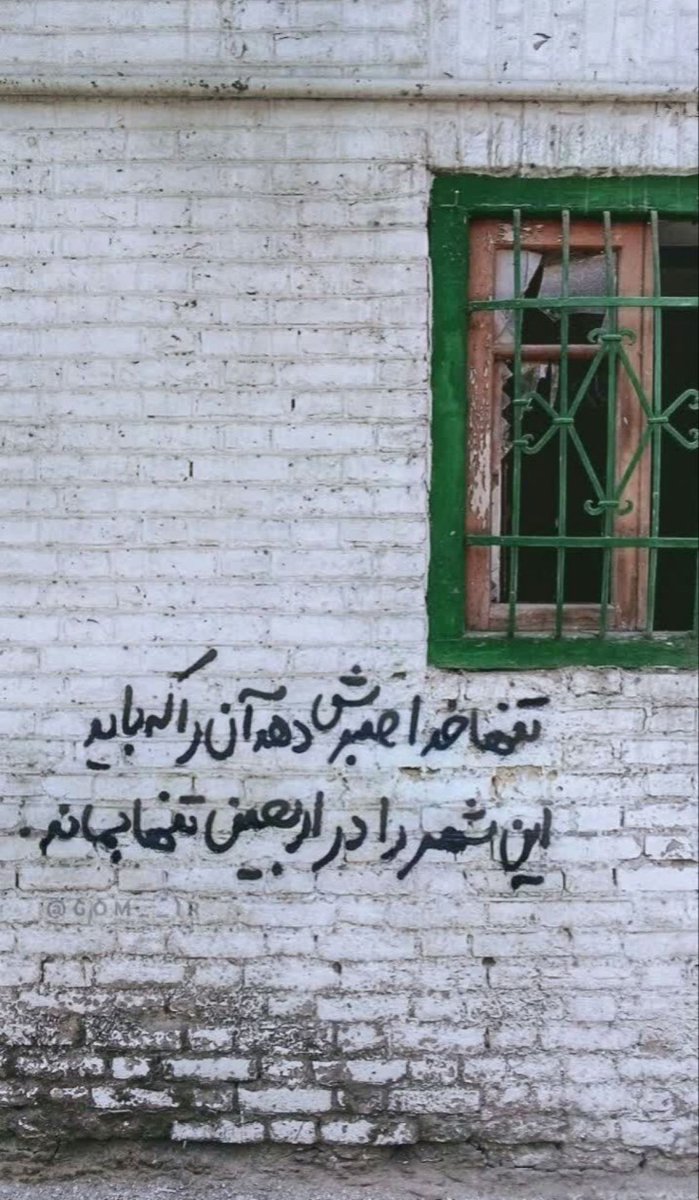 تنها خدا صبرش دهد آن را که باید
این شهر را در اربعین تنها بماند.
@GOM__IR